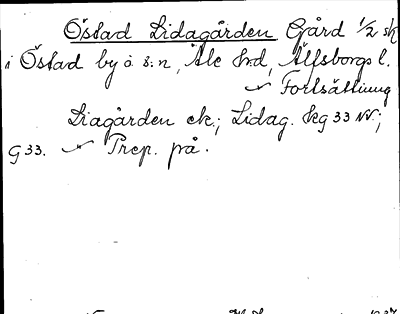 Östad Lidagården Gård 1/2 sk
i Östad by o. s:n, Ale hd, Älfsborgs l.
Fortsättning
Liagården ek.; Lidag. Kg 33 NV.;
G 33. Prep. på.